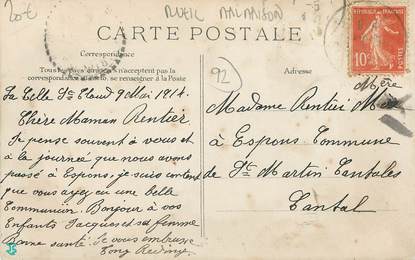 20€
RUEIL MALMAISON
CARTE POSTALE
Correspondance
Tous les pays étrangers n'acceptent pas la
correspondance au verso, se renseigner à la Poste
Adresse
92
REPUBLIQUE FRANÇAISE
10c
La Celle St Cloud 9 Mai 1914.
Chère Maman Rentier
Je pense souvent à vous et
à la journée que nous avons
passé à Espons, je suis content
que vous ayez eu une belle
Communion. Bonjour à vos
Enfants Jacques et sa femme
Bonne santé. Je vous embrasse
Mère
Madame Rentier Mère
à Espons Commune
de St Martin Cantalès
Cantal